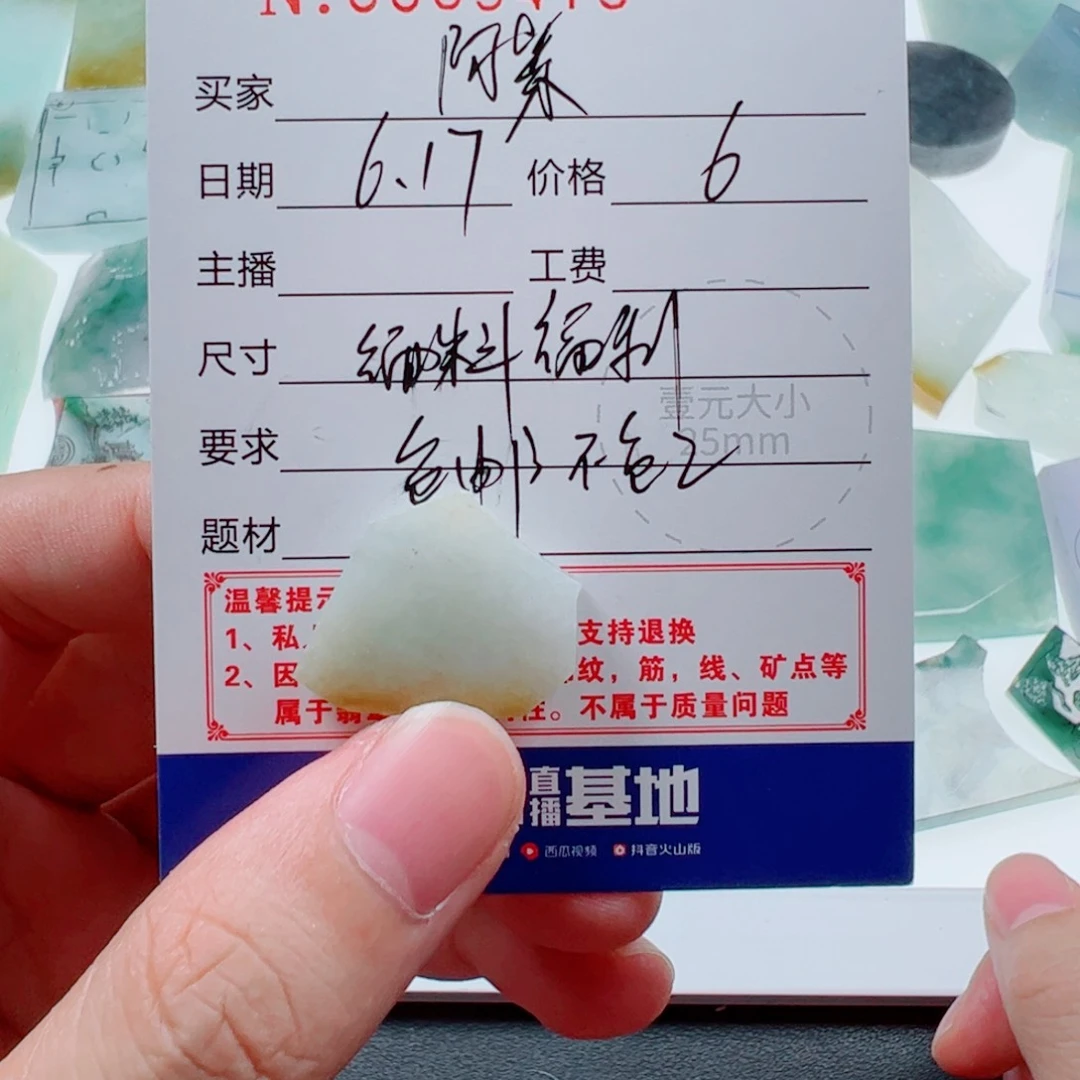 买家
日期 6.17 价格 6
主播 工费
尺寸
壹元大小
25mm
要求 包邮 不包工
题材
温馨提示
1、私 支持退换
2、因 纹，筋，线、矿点等
属于 。不属于质量问题
直播基地
西瓜视频 抖音火山版